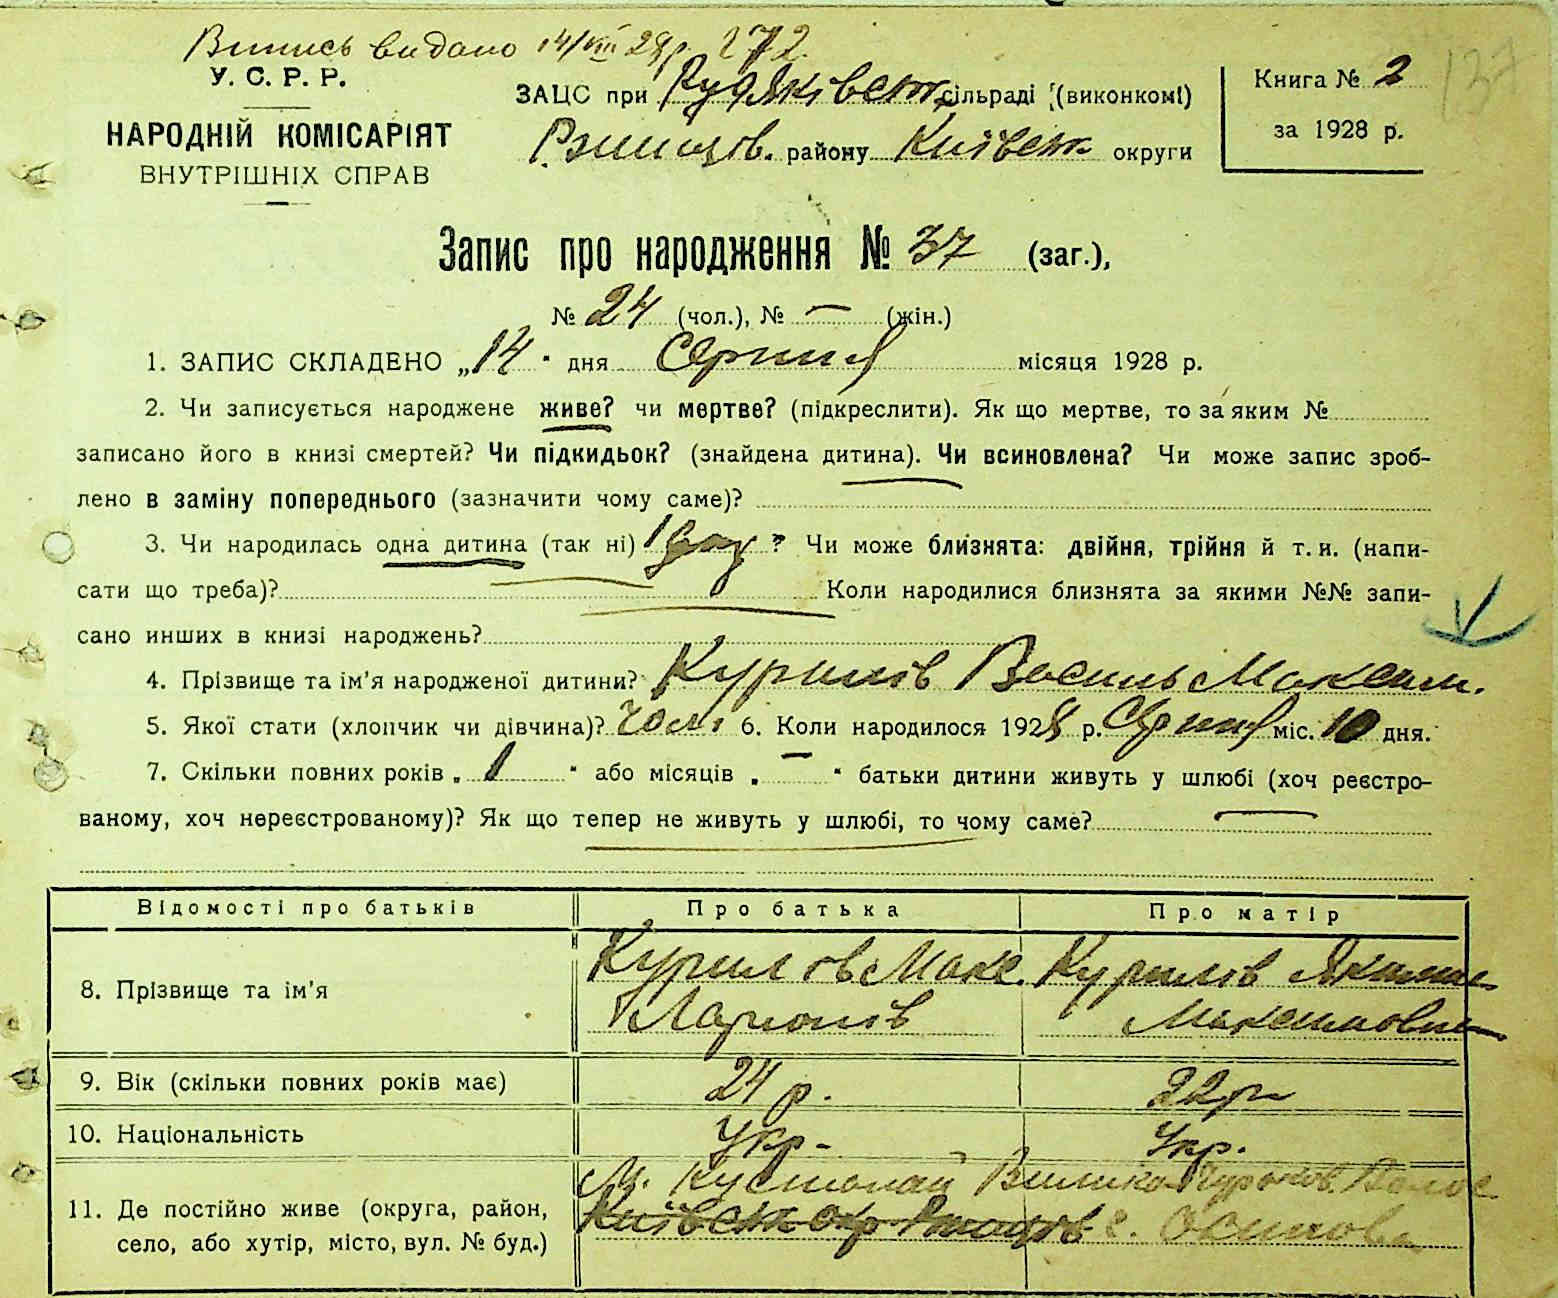 Випись видано 14/VIII 28р. 272
У. С. Р. Р.
НАРОДНІЙ КОМІСАРІЯТ
ВНУТРІШНІХ СПРАВ
ЗАЦС при Рудяківськ. сільраді (виконкомі)
району Київськ округи
Книга № 2
за 1928 р.
137
Запис про народження № 37 (заг.),
№ 24 (чол.), № — (жін.)
1. ЗАПИС СКЛАДЕНО „14" дня Серпня місяця 1928 р.
2. Чи записується народжене живе? чи мертве? (підкреслити). Як що мертве, то за яким №
записано його в книзі смертей? Чи підкидьок? (знайдена дитина). Чи всиновлена? Чи може запис зроб-
лено в заміну попереднього (зазначити чому саме)?
3. Чи народилась одна дитина (так ні) 1 ? Чи може близнята: двійня, трійня й т. и. (напи-
сати що треба)? Коли народилися близнята за якими №№ запи-
сано инших в книзі народжень?
4. Прізвище та ім'я народженої дитини? Курилів Василь Максим.
5. Якої стати (хлопчик чи дівчина)? чол. 6. Коли народилося 1928 р. Серпня міс. 10 дня.
7. Скільки повних років „ 1 " або місяців „ — " батьки дитини живуть у шлюбі (хоч реєстро-
ваному, хоч нереєстрованому)? Як що тепер не живуть у шлюбі, то чому саме? —
Відомості про батьків
Про батька
Про матір
8. Прізвище та ім'я
Курилов Макс.
Ларионів
Курилів
Максимовна
9. Вік (скільки повних років має)
24 р.
22 р
10. Національність
Укр.
Укр.
11. Де постійно живе (округа, район,
село, або хутір, місто, вул. № буд.)
м. Кустанай
Київськ окр
с.